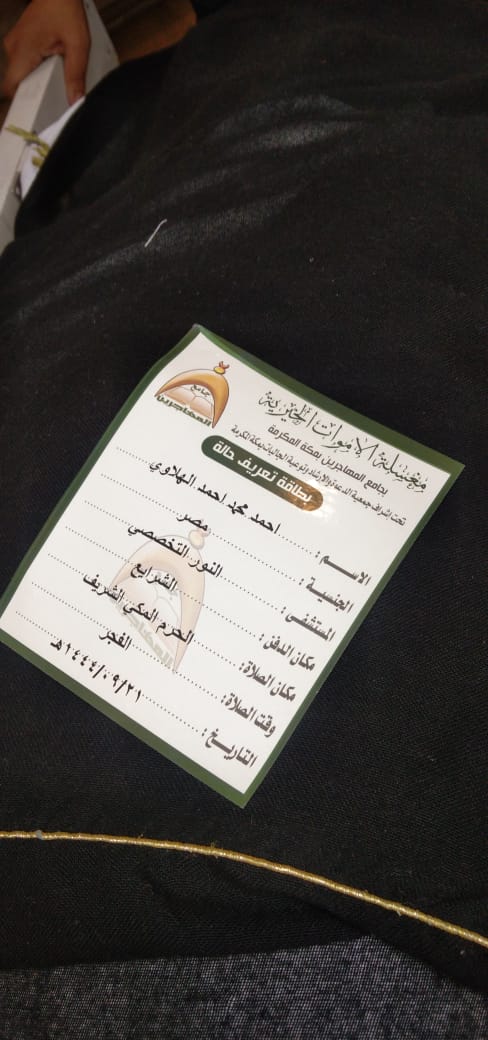 جامع
المهاجرين
مغسلة الاموات الخيرية
بجامع المهاجرين بمكة المكرمة
تحت إشراف جمعية الدعوة والارشاد وتوعية الجاليات بمكة المكرمة
بطاقة تعريف حالة
الاسم : احمد محمد احمد الهلاوي
الجنسية : مصر
المستشفى : النور التخصصي
مكان الدفن : الشرايع
مكان الصلاة : الحرم المكي الشريف
وقت الصلاة : الفجر
التاريخ : ١٤٤٤/٠٩/٢١هـ